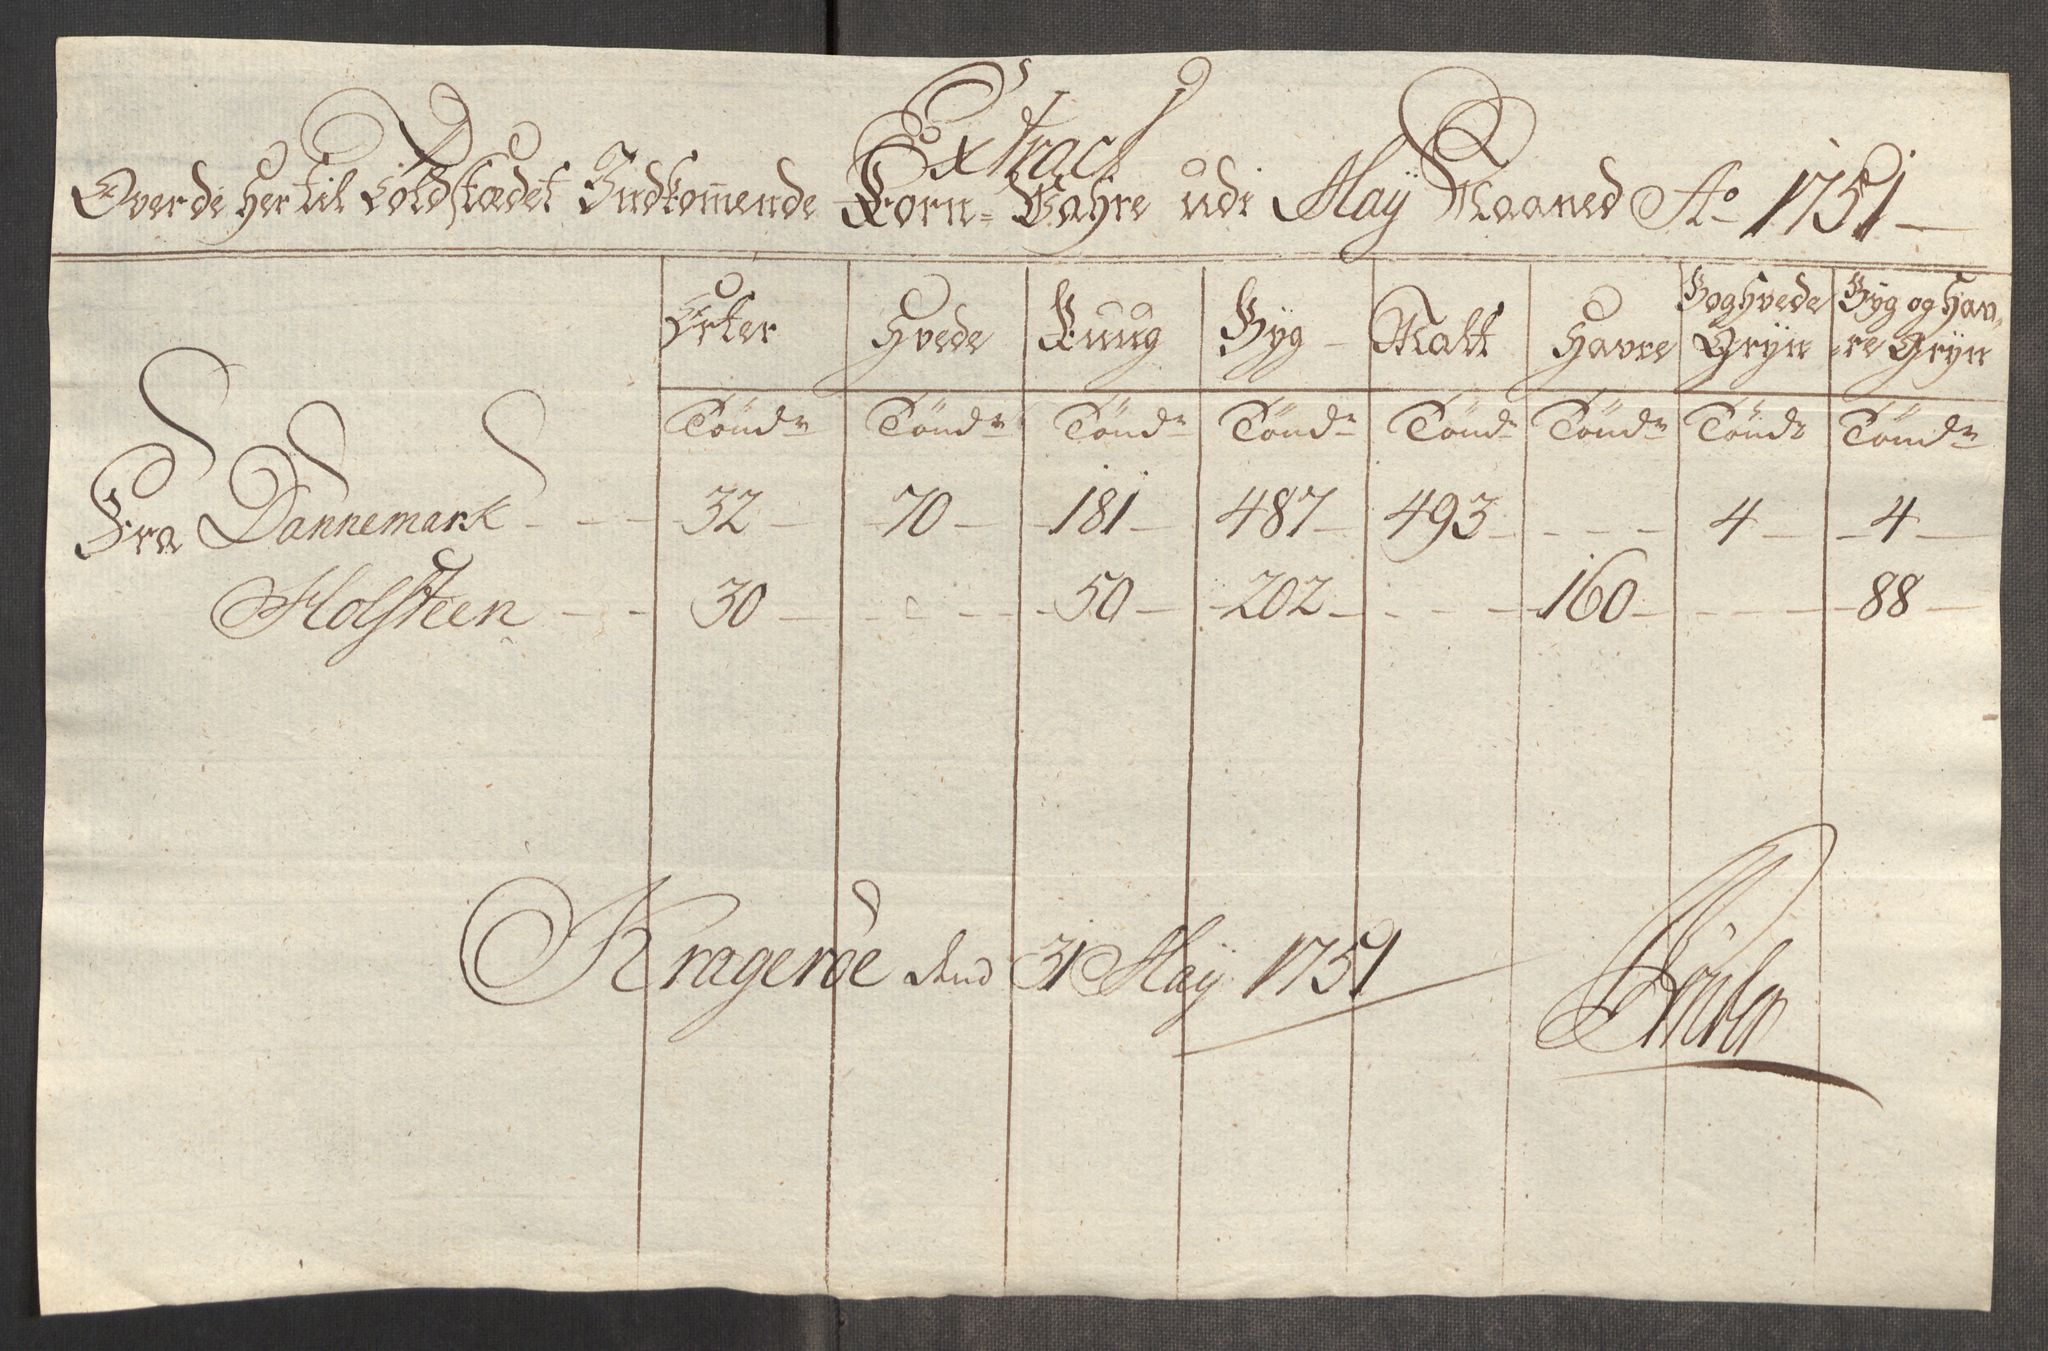 Extract
Over de Her til Toldstædet Indkommende Korn-Wahre udi May Maaned Ao 1751
Erter Hvede Ruug Byg Malt Havre Boghvede Gryn Byg og Havre Gryn
Töndr Töndr Töndr Töndr Töndr Töndr Töndr Töndr
Fra Dannemark 32 70 181 487 493 - - - 4 4
Holsteen 30 - - - 50 202 - - - 160 - - - 88
Krageröe dend 31 May 1751